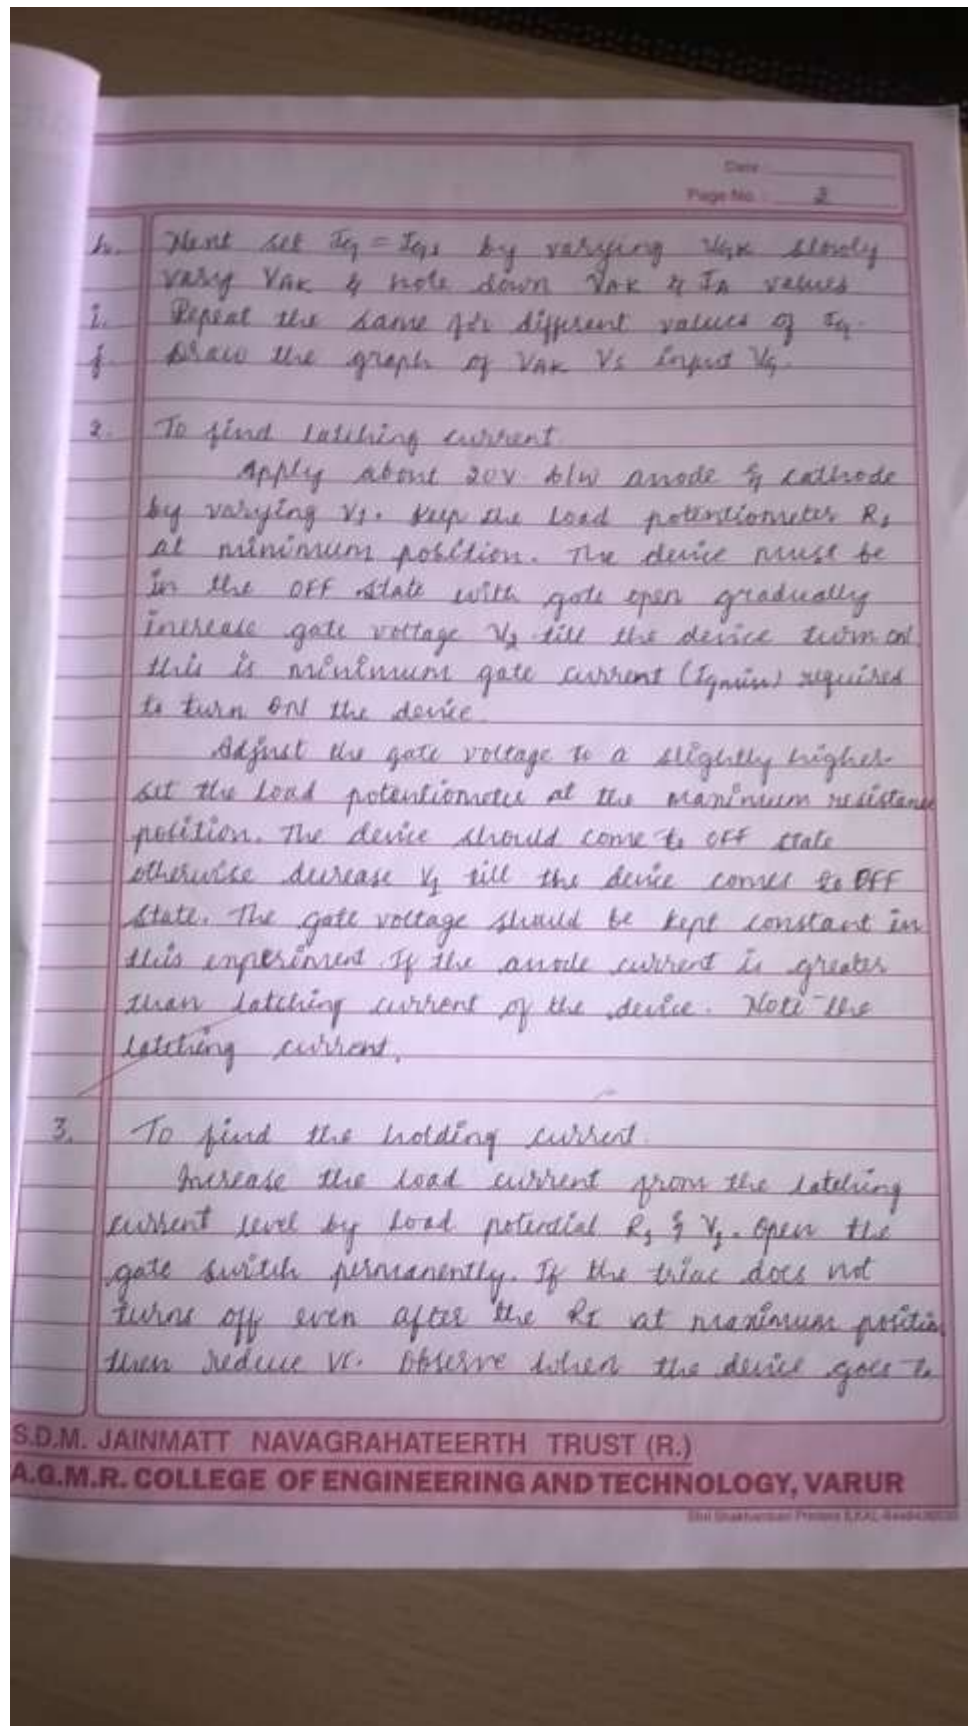 Date
Page No. 3
h. Next set Ig = Ig2 by varying VGK slowly
vary VAK & note down VAK & IA values
i. Repeat the same for different values of Ig.
j. Draw the graph of VAK Vs input Vg.
2. To find latching current.
Apply about 20V b/w anode & cathode
by varying V1. Keep the load potentiometer R1
at minimum position. The device must be
in the OFF state with gate open gradually
increase gate voltage V2 till the device turn on
this is minimum gate current (Igmin) required
to turn ON the device.
Adjust the gate voltage to a slightly higher
set the load potentiometer at the maximum resistance
position. The device should come to OFF state
otherwise decrease V1 till the device comes to OFF
state. The gate voltage should be kept constant in
this experiment. If the anode current is greater
than latching current of the device. Note the
latching current.
3. To find the holding current.
Increase the load current from the latching
current level by load potential R1 & V1. Open the
gate switch permanently. If the triac does not
turns off even after the RI at maximum positio
then reduce VI. Observe when the device goes to
S.D.M. JAINMATT NAVAGRAHATEERTH TRUST (R.)
A.G.M.R. COLLEGE OF ENGINEERING AND TECHNOLOGY, VARUR